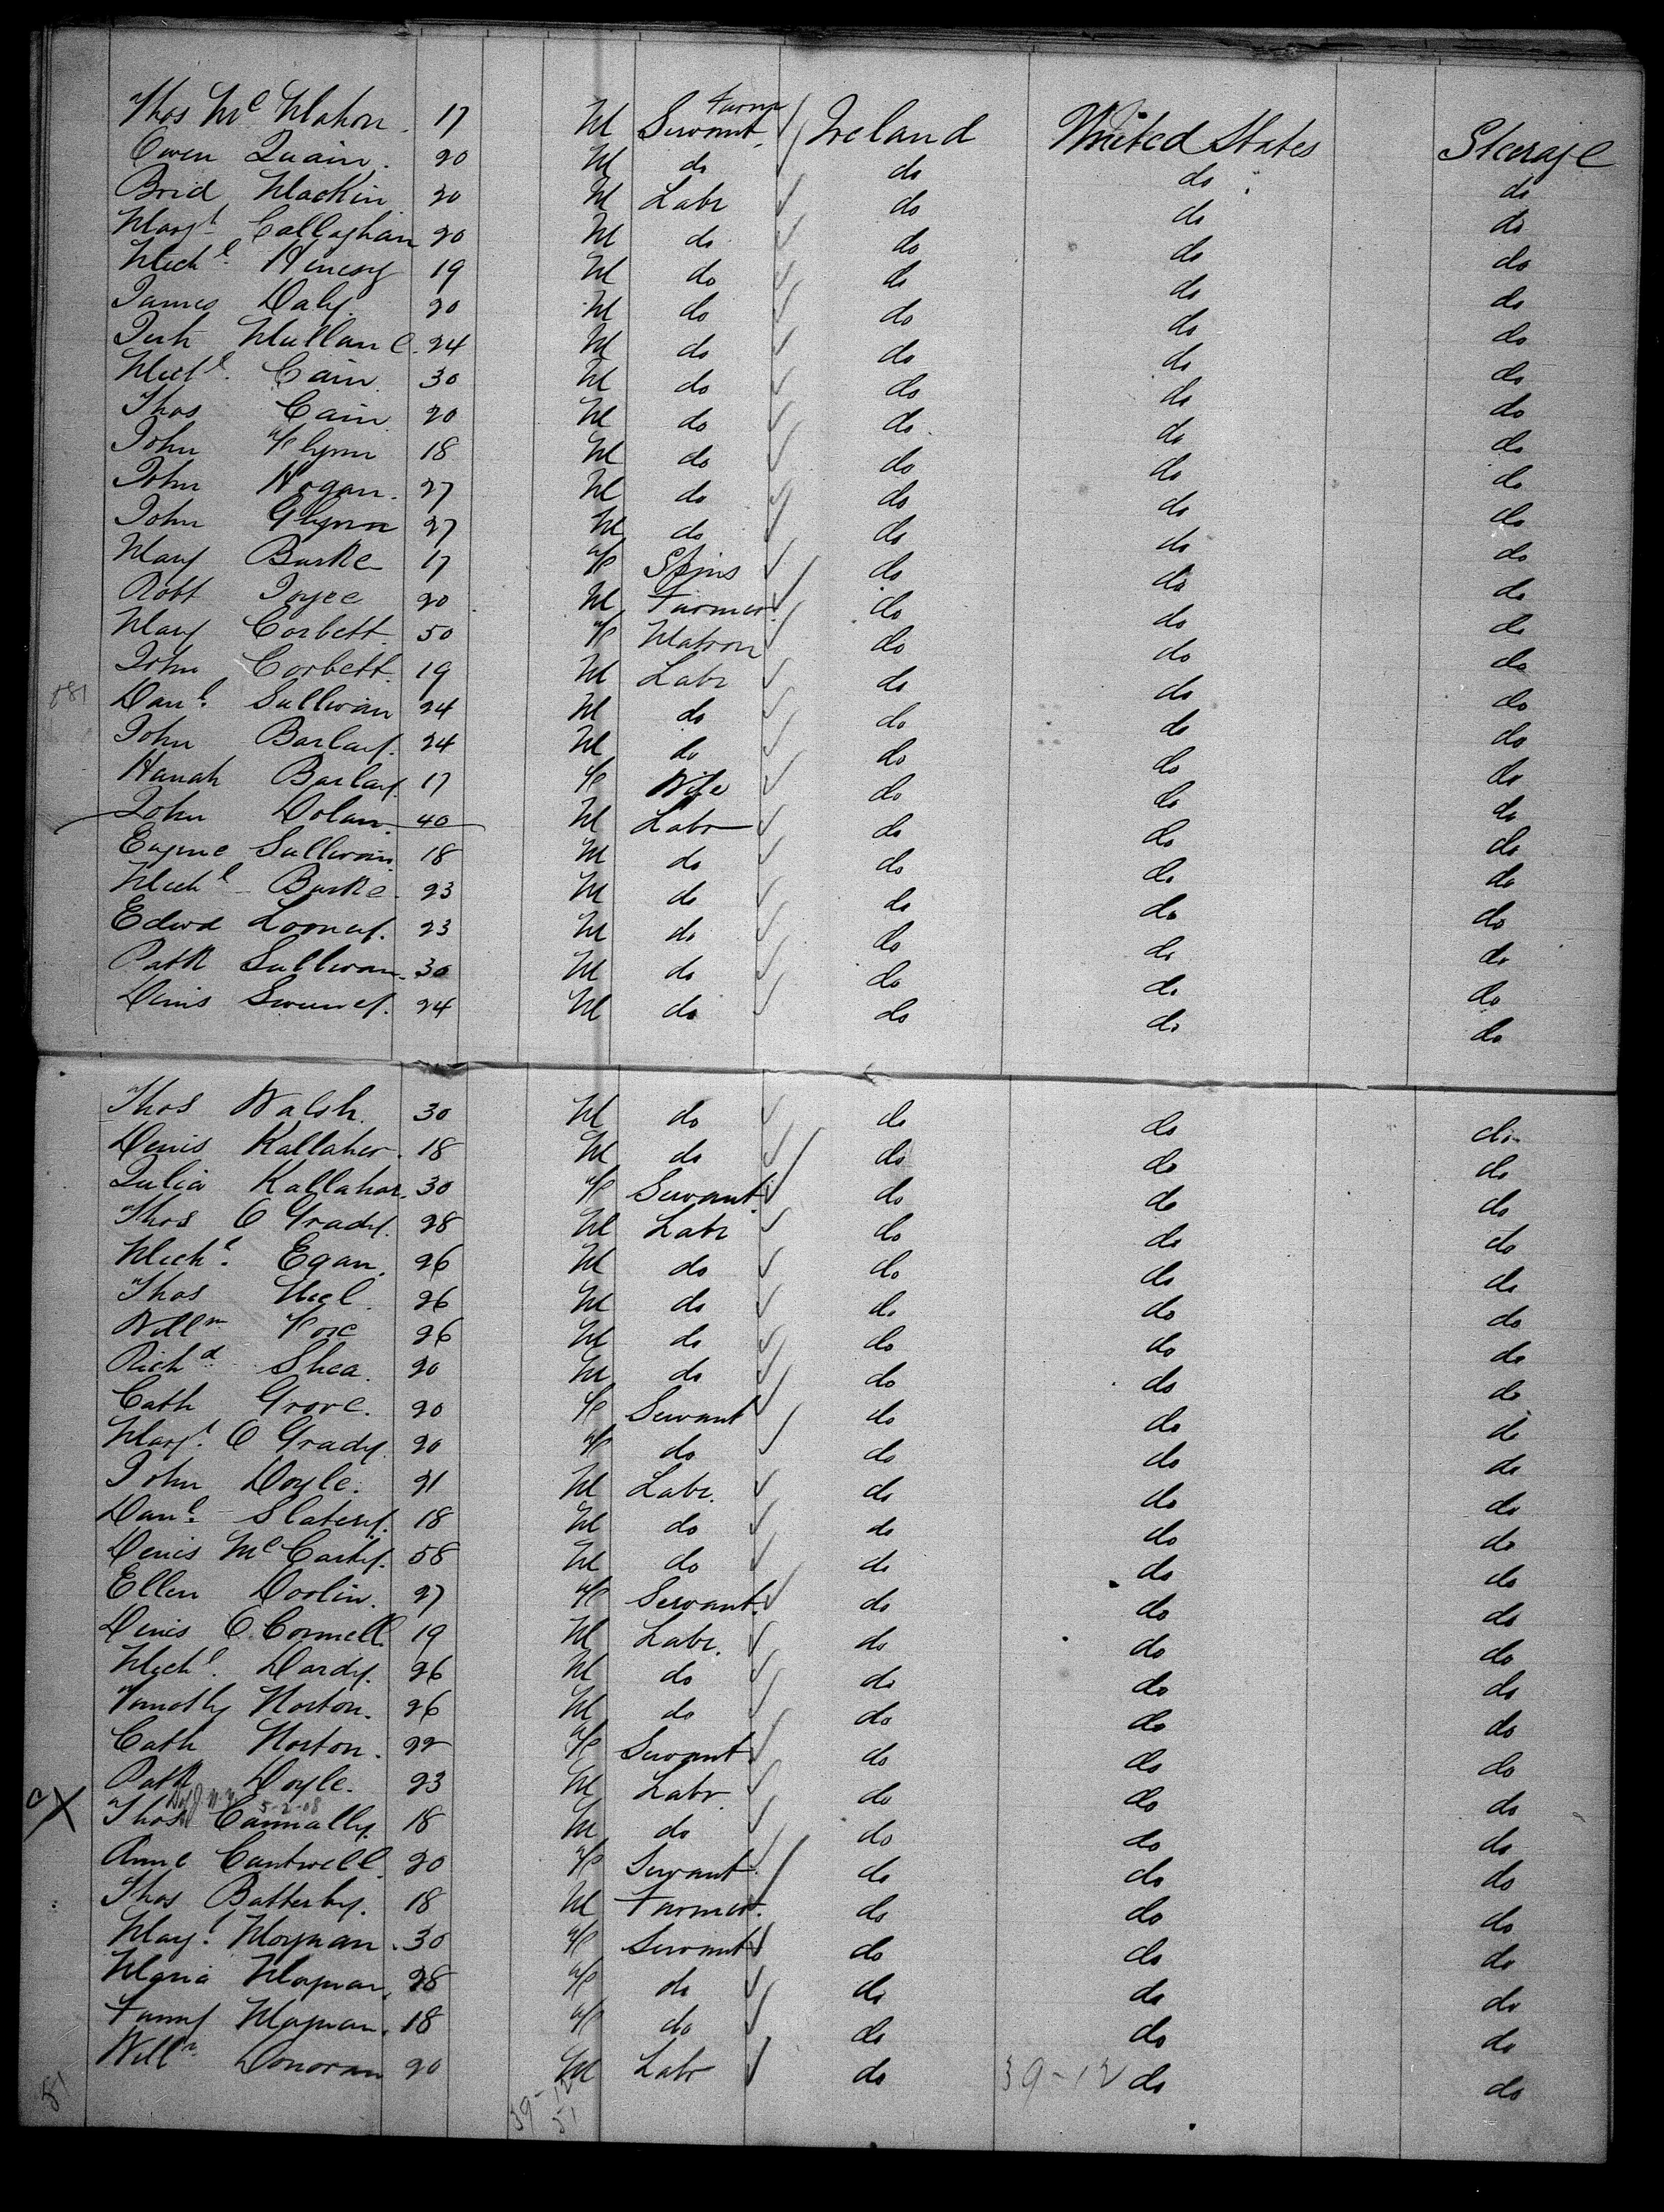 Thos McMahon. 17 M Farm Servant Ireland United States Steerage
Owen Quain. 20 M do do do do
Brid Mackin 20 M Labr do do do
Margt Callaghan 20 M do do do do
Michl 19 M do do do do
James Daly. 20 M do do do do
Mullane. 24 M do do do do
Michl. Cain. 30 M do do do do
Thos Cain 20 M do do do do
John Flynn 18 M do do do do
John Hogan. 27 M do do do do
John Glynn 27 M do do do do
Mary Burke 17 F Spins do do do
Robt Joyce 20 M Farmer. do do do
Mary Corbett 50 F Matron do do do
John Corbett. 19 M Labr do do do
Danl. Sullivan 24 M do do do do
John Barlay. 24 M do do do do
Hanah Barlay. 17 F Wife do do do
John Dolan. 40 M Labr do do do
Eugene Sullivan 18 M do do do do
Michl Burke. 23 M do do do do
Edwd Looney. 23 M do do do do
Patk Sullivan. 30 M do do do do
Denis Sweeney. 24 M do do do do
Thos Walsh. 30 M do do do do
Denis Kallaher. 18 M do do do do
Julia Kallahar. 30 F Servant. do do do
Thos O Grady. 28 M Labr do do do
Michl. Egan. 26 M do do do do
Thos 26 M do do do do
Willm 26 M do do do do
Richd Shea. 20 M do do do do
Cath Grove. 20 F Servant do do do
Margt. O Grady. 20 F do do do do
John Doyle. 21 M Labr. do do do
Danl. Slatery. 18 M do do do do
Denis McCarty. 58 M do do do do
Ellen Doolin. 27 F Servant. do do do
Denis O. Connell 19 M Labr. do do do
Michl. Dardy. 26 M do do do do
Timothy Norton. 26 M do do do do
Cath Norton. 22 F Servant. do do do
Patk Doyle. 23 M Labr do do do
5-2-08
X Thos Cannally. 18 M do do do do
Anne Cantwell 20 F Servant. do do do
Thos Batterby. 18 M Farmer. do do do
Margt. Moynan. 30 F Servant do do do
Maria Moynan. 28 F do do do do
Fanny Moynan. 18 F do do do do
Willm Donovan 20 M Labr do do do
81 39-12 51 39-12